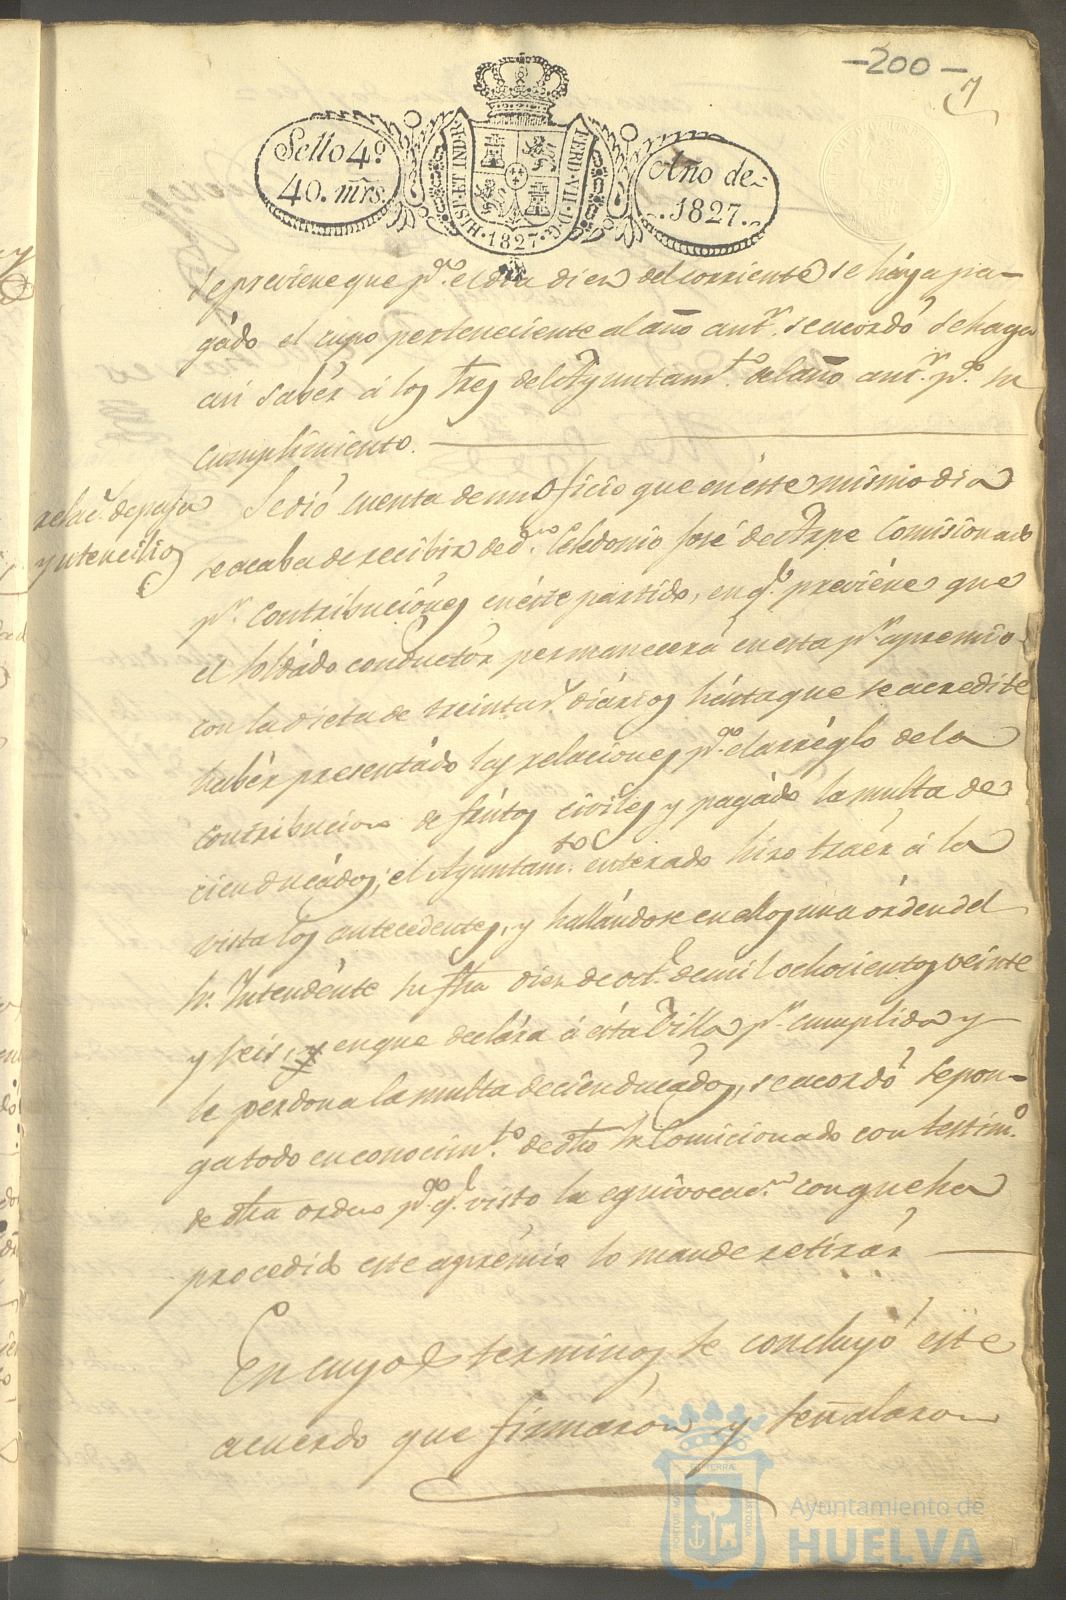 -200-
7
Sello 4º
40. mrs.
HISP. ET IND. R.
FERD. VII. D. G.
·1827·
Año de
1827.
se previene que pª. el dia diez del corriente se haya pa-
gádo el cupo perteneciente al año antr. se acordó se haga
asi sabér á los Sres del Ayuntamto. del año antr. pª. su
cumplimiento.
relacs. de paja
y utencilios
Se dió cuenta de un Oficio que en éste mismo dia
se acaba de recibir de dn. Celedonio José de Arpe Comisionado
pr. Contribuciónes en éste partido, en q. previéne que
el soldádo conductór permanecerá en esta pr. apremio
con la dieta de treinta rs. diários hásta que se acredite
habér presentádo las relaciones pª. el arréglo de la
contribucion de frútos civíles y pagádo la multa de
cien ducádos; el Ayuntamto. enterado hizo traér á la
vista los antecedentes, y hallándose en ellos una órden del
Sr. Intendénte su fha diez de oct. de mil ochocientos veinte
y seis, y en que declára á ésta Villa pr. cumplida y
le perdona la multa de cien ducádos, se acordó se pon-
ga todo en conocimto. de dho Sr. Comicionado con testimo.
de dha orden pª. q. visto la equivocacn. con que ha
procedido este aprémio lo mande retirár
En cuyos terminos se concluyó éste
acuerdo que firmarón y señalaron
PORTUS MARIS
ET TERRAE
CUSTODIA
Ayuntamiento de
HUELVA